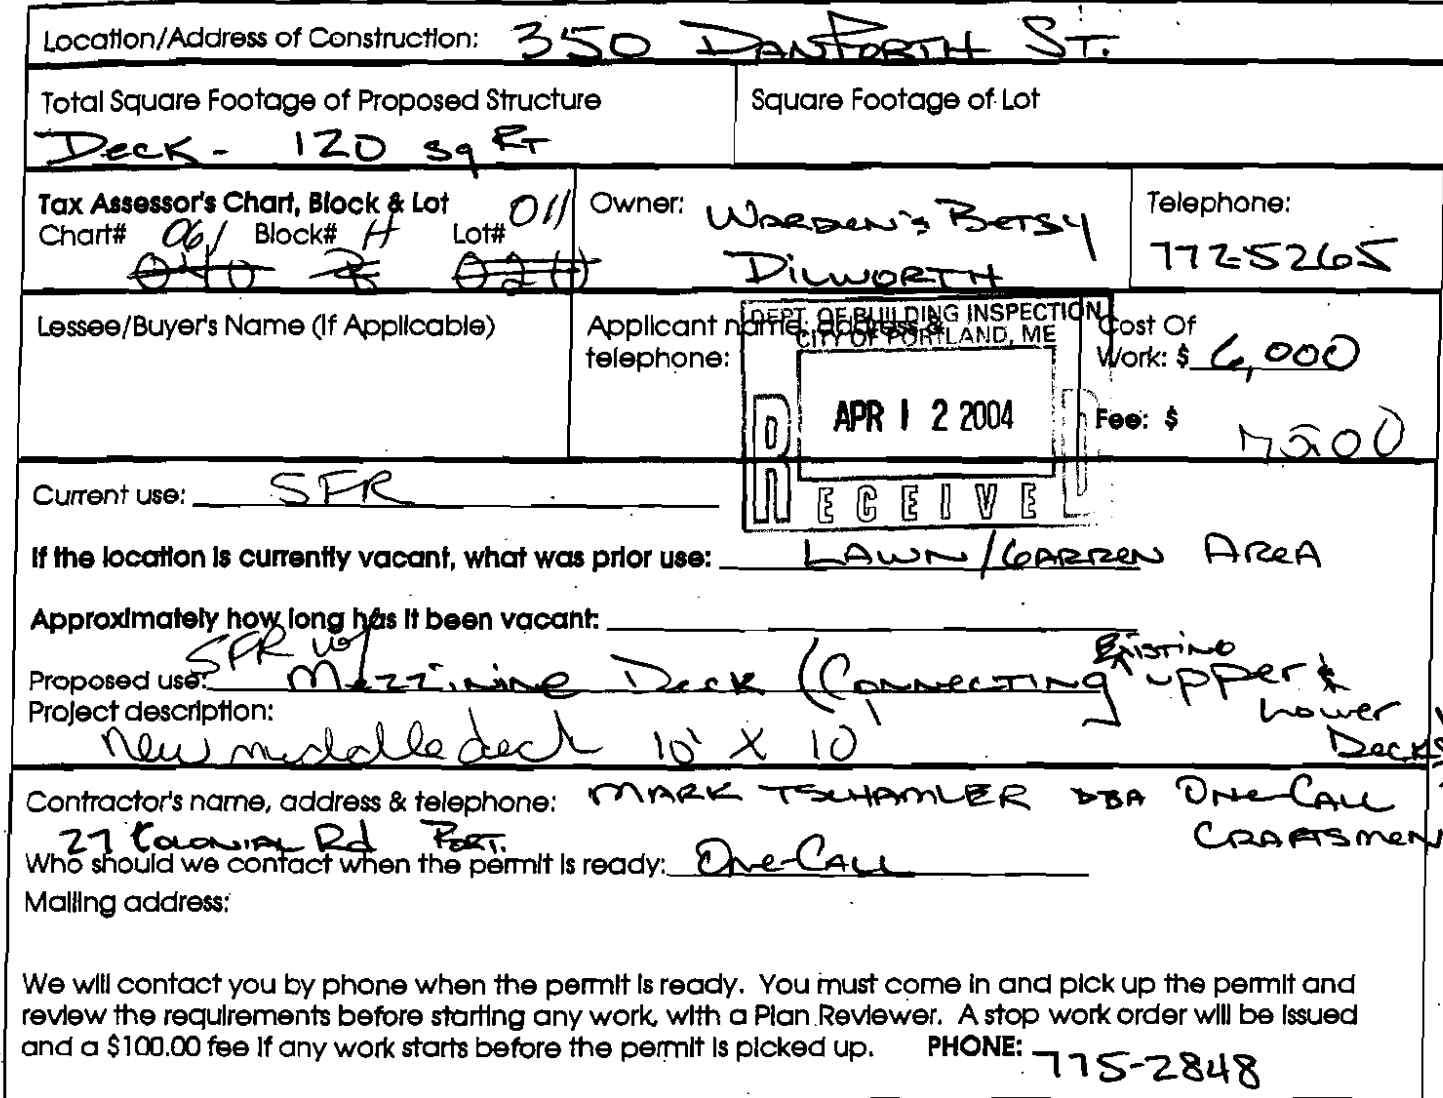 Location/Address of Construction: 350 DANFORTH ST.
Total Square Footage of Proposed Structure
Deck - 120 sq FT
Square Footage of Lot
Tax Assessor's Chart, Block & Lot
Chart# 061 Block# H Lot# 011
040 020
Owner: WARDEN & BETSY
DILWORTH
Telephone:
772-5265
Lessee/Buyer's Name (If Applicable)
Applicant name, address &
telephone:
DEPT. OF BUILDING INSPECTION
CITY OF PORTLAND, ME
APR 12 2004
RECEIVED
Cost Of
Work: $ 6,000
Fee: $
Current use: SFR
If the location is currently vacant, what was prior use: LAWN/GARDEN AREA
Approximately how long has it been vacant:
Proposed use: SFR w/ Mezzinine Deck (Connecting Existing upper & Lower Decks)
Project description:
New middle deck 10' X 10'
Contractor's name, address & telephone: MARK TSCHAMLER DBA ONE-CALL CRAFTSMEN
27 COLONIAL Rd PORT.
Who should we contact when the permit is ready: One-CALL
Mailing address:
We will contact you by phone when the permit is ready. You must come in and pick up the permit and
review the requirements before starting any work, with a Plan Reviewer. A stop work order will be issued
and a $100.00 fee if any work starts before the permit is picked up. PHONE: 775-2848